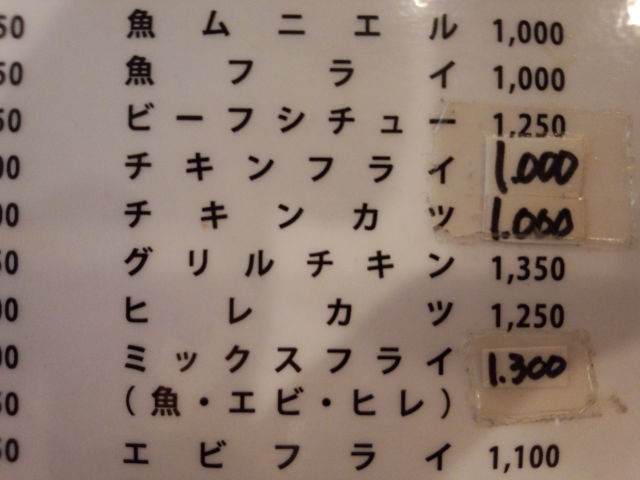 50 魚ムニエル 1,000
50 魚フライ 1,000
50 ビーフシチュー 1,250
00 チキンフライ 1.000
00 チキンカツ 1.000
50 グリルチキン 1,350
00 ヒレカツ 1,250
00 ミックスフライ 1.300
50 (魚・エビ・ヒレ)
50 エビフライ 1,100